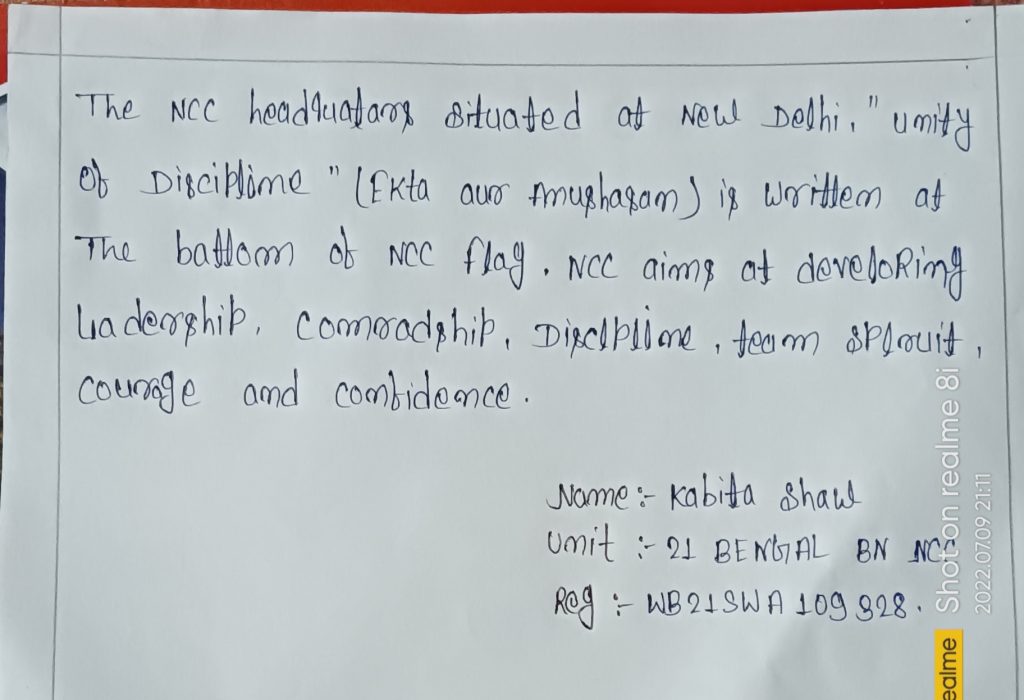 The NCC headquatars situated at New Delhi, "unity
of Discipline" (Ekta aur Anushasan) is written at
The battom of NCC flag. NCC aims at developing
Ladership, comradship, Discipline, team spirit,
courage and confidence.
Name :- Kabita Shaw
Unit :- 21 BENGAL BN NCC
Reg :- WB21SWA109928.
Shot on realme 8i
2022.07.09 21:11
ealme